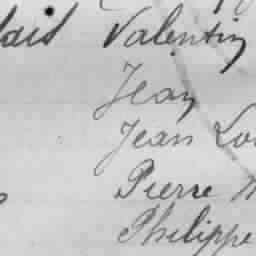 lais Valentin
Jean
Jean Lou
Pierre
Philippe